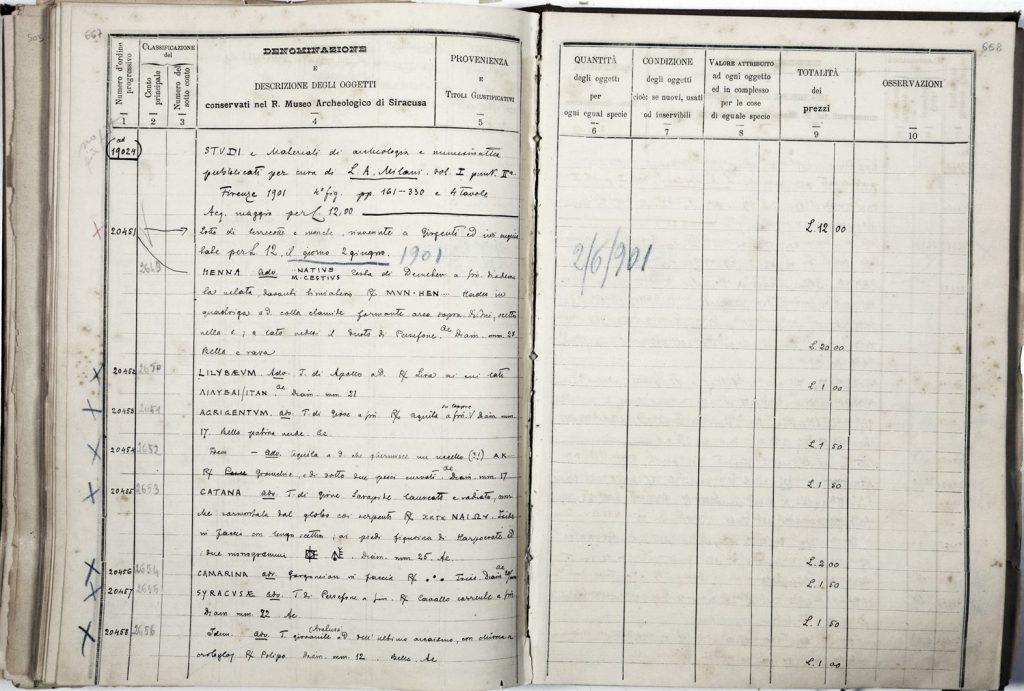 505
667
Numero d'ordine progressivo
CLASSIFICAZIONE del
Conto principale
Numero del sotto conto
DENOMINAZIONE
E
DESCRIZIONE DEGLI OGGETTI
conservati nel R. Museo Archeologico di Siracusa
PROVENIENZA
E
TITOLI GIUSTIFICATIVI
1 2 3 4 5
ad 19024
STVDI e Materiali di archeologia e numismatica
pubblicati per cura di L. A. Milani. Vol. I punt. IIa
Firenze 1901 4° fig. pp. 161-330 e 4 tavole
Acq. maggio per £. 12,00
20451 Lotto di terrecotte e monete, rinvenute a Girgenti ed ivi
per £ 12, il giorno 2 giugno. 1901
2649
HENNA adv. NATIVS M. CESTIVS Testa di Demeter a
la velata davanti ℞ MVN · HEN Hades in
quadriga
nella s.; a lato il Ratto di Persefone. Ae Diam. mm. 28
Bella e rara
20452 2650 LILYBÆVM. Adv. T. di Apollo a D. ℞ Lira ai cui lati
ΛΙΛΥΒΑΙ/ΙΤΑΝ. Ae Diam. mm. 21
20453 2651 AGRIGENTVM. adv. T. di Giove a ℞ aquila Diam. mm.
17. Bella patina verde. Ae
20454 2652 Idem — adv. Aquila a D. che un uccello (?!) AK
℞ Granchio, di sotto due pesci Ae Diam. mm. 17
20455 2653 CATANA adv. T. di Giove Serapide laureata e radiata,
dal globo coi serpenti ℞ ΚΑΤΑ ΝΑΙΩΝ. Iside
in faccia con lungo scettro; ai piedi figurina di Harpocrate ed
due monogrammi Diam. mm. 25. Ae.
20456 2654 CAMARINA adv. Gorgoneion in faccia ℞ ••• Diam.
20457 2655 SYRACVSÆ adv. T. di Persefone a ℞ Cavallo corrente a
Diam mm. 22 Ae
20458 2656 Idem. adv. T. giovanile (Arethusa) a D. dell'ultimo arcaismo, con chioma a
℞ Polipo Diam. mm. 12. Bella. Ae
668
QUANTITÀ
degli oggetti
per
ogni egual specie
CONDIZIONE
degli oggetti
cioè: se nuovi, usati
od inservibili
VALORE ATTRIBUITO
ad ogni oggetto
ed in complesso
per le cose
di eguale specie
TOTALITÀ
dei
prezzi
OSSERVAZIONI
6 7 8 9 10
L. 12 00
2/6/901
L. 20 00
L. 1 00
L. 1 50
L. 1 50
L. 2 00
L. 1 50
L. 1 50
L. 1 00